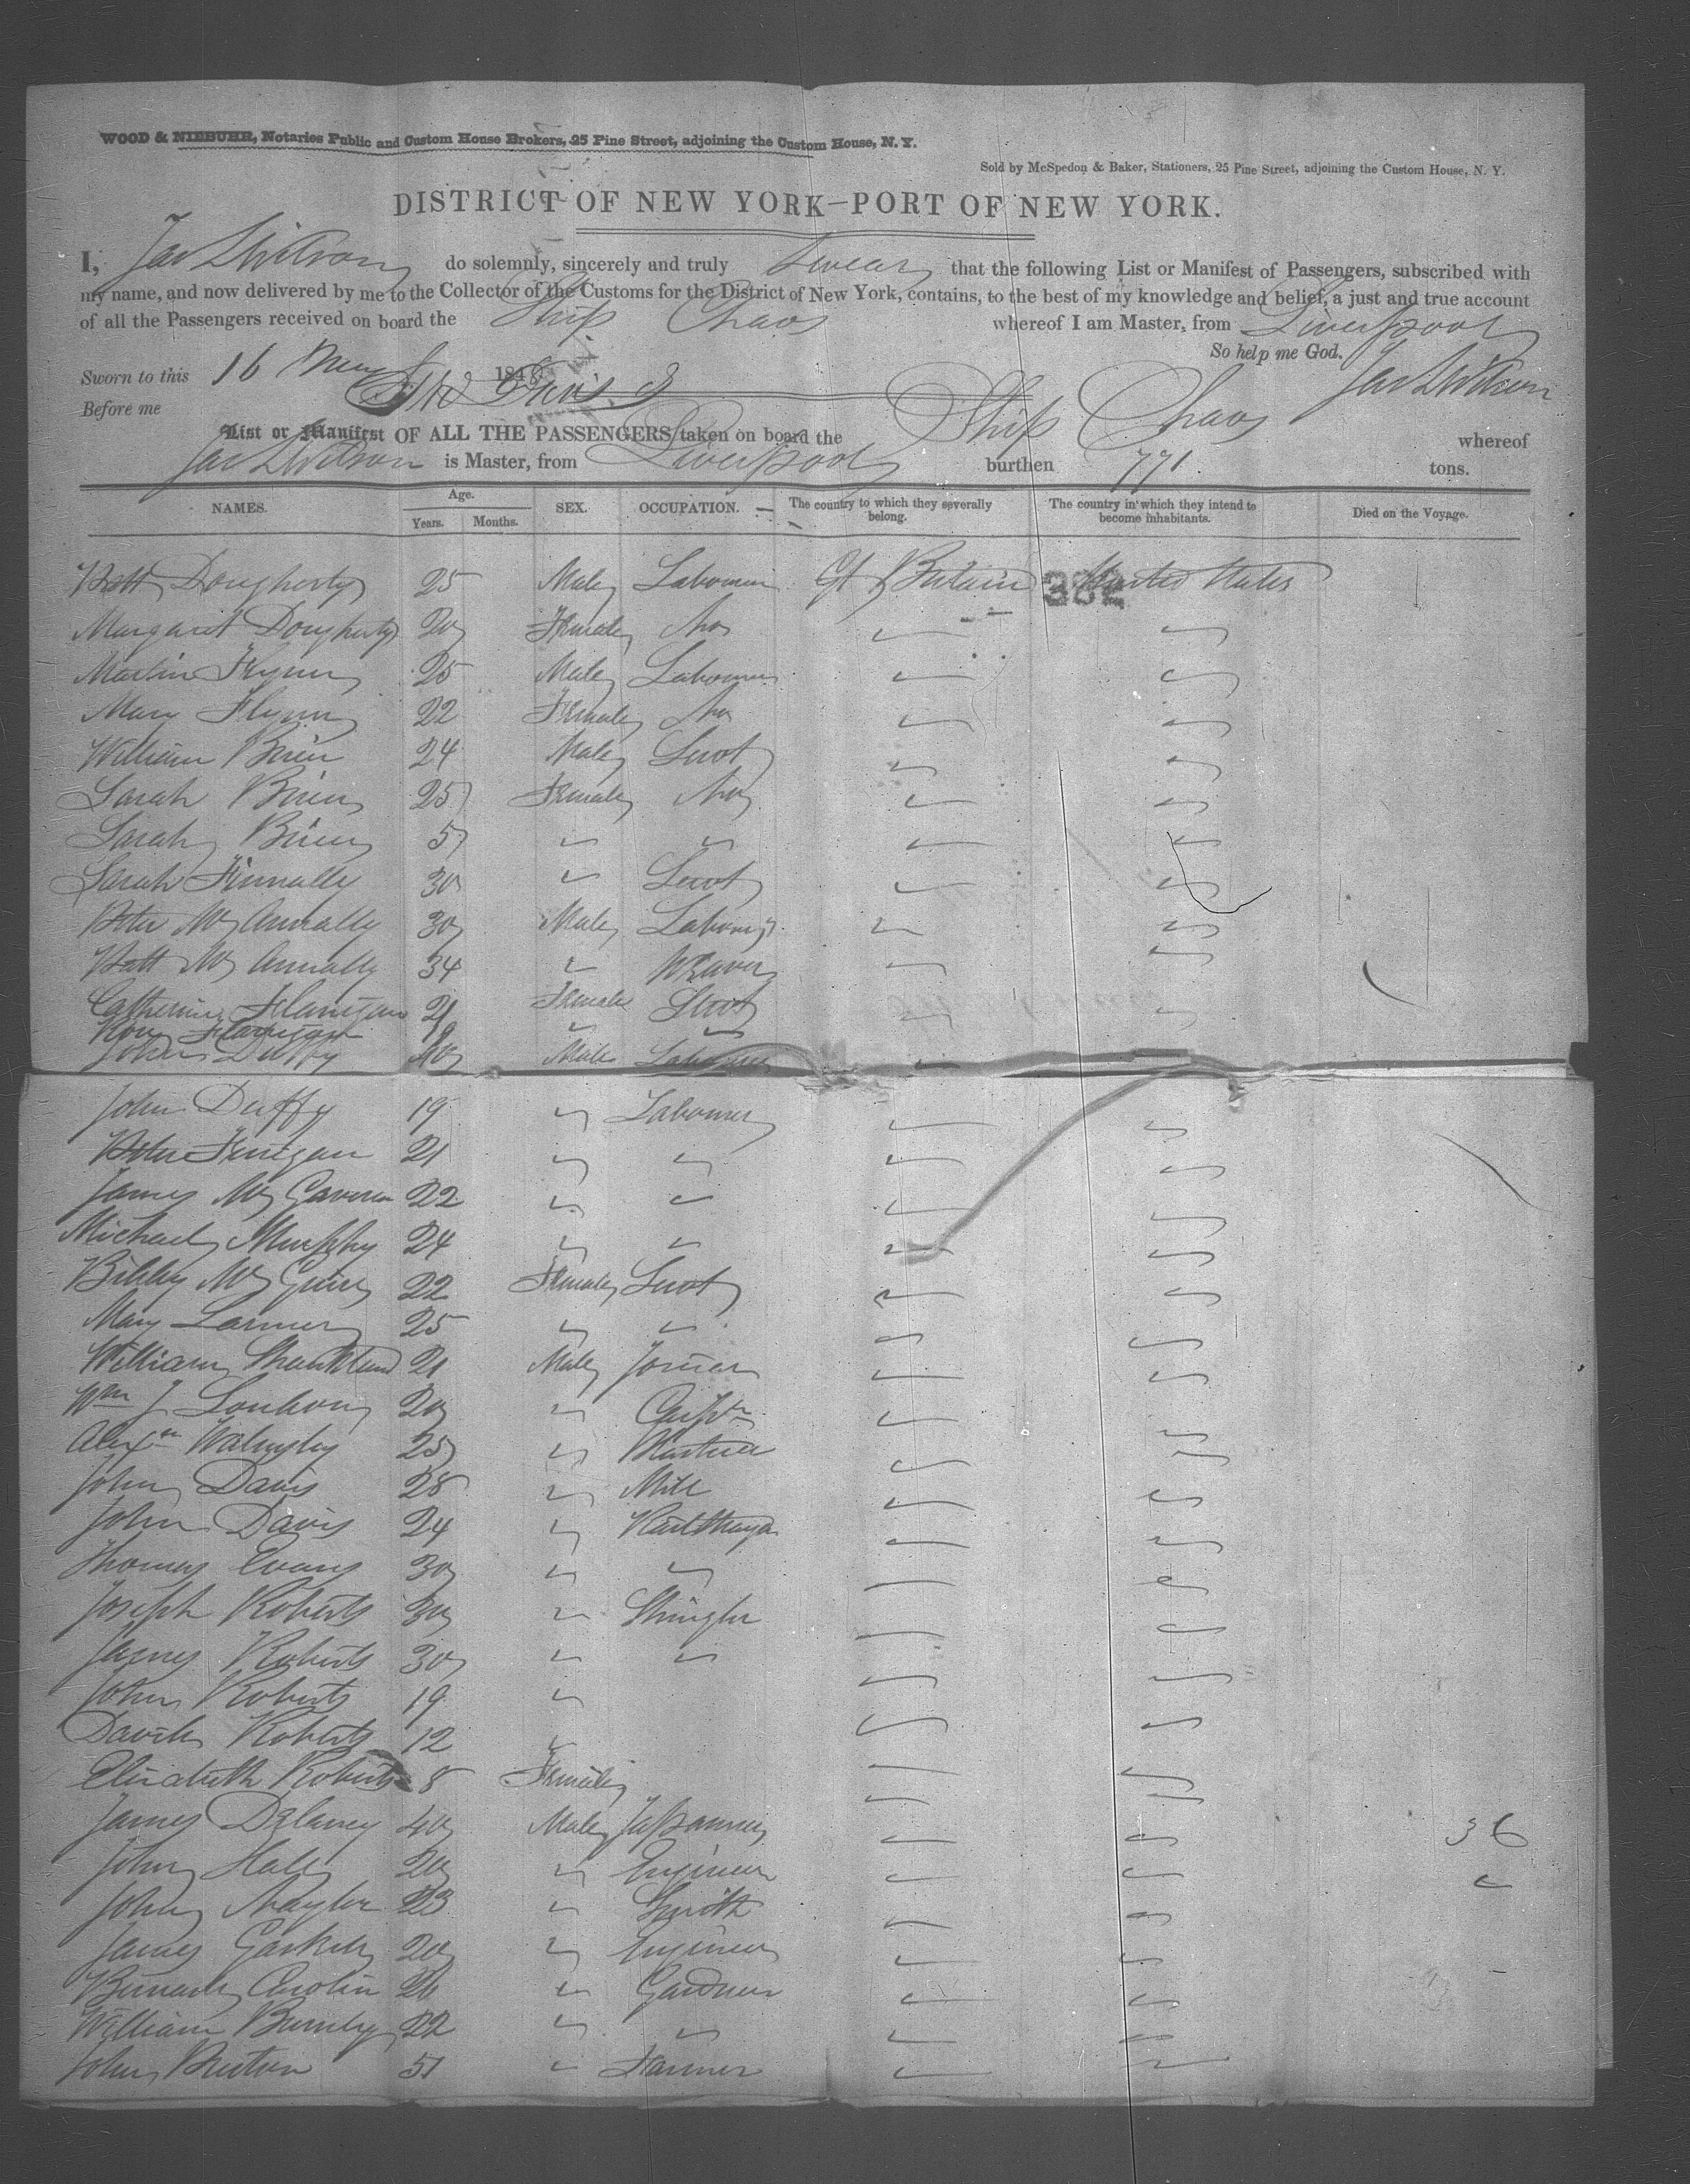 WOOD & NIEBUHR, Notaries Public and Custom House Brokers, 25 Pine Street, adjoining the Custom House, N. Y.
Sold by McSpedon & Baker, Stationers, 25 Pine Street, adjoining the Custom House, N. Y.
DISTRICT OF NEW YORK—PORT OF NEW YORK.
I, Jas L Wilson do solemnly, sincerely and truly swear that the following List or Manifest of Passengers, subscribed with
my name, and now delivered by me to the Collector of the Customs for the District of New York, contains, to the best of my knowledge and belief, a just and true account
of all the Passengers received on board the Ship Chaos whereof I am Master, from Liverpool
So help me God.
Sworn to this 16 184 Jas L Wilson
Before me
List or Manifest OF ALL THE PASSENGERS taken on board the Ship Chaos whereof
Jas L Wilson is Master, from Liverpool burthen 771 tons.
NAMES. Age. Years. Months. SEX. OCCUPATION. The country to which they severally belong. The country in which they intend to become inhabitants. Died on the Voyage.
Patt Dougherty 25 Male Labourer Gt Britain 382 United States
Margaret Dougherty 20 Female
Martin Flynn 25 Male Labourer
Mary Flynn 22 Female
William Brien 24 Male Servt
Sarah Brien 25 Female
Sarah Brien 5 " "
Sarah Finnally 30 " Servt
Peter McAnnally 30 Male Labourer
Patt McAnnally 34 " Weaver
Catherine Flanigan 21 Female Servt
Flanigan 19 " "
John Duffy 40 Male Labourer
John Duffy 19 " Labourer
Peter Finigan 21 " "
James McGavern 22 " "
Michael Murphy 24 " "
Biddy McGuire 22 Female Servt
Mary Larner 25 " "
William 21 Male Joiner
Wm J 20 " Carptr
Alexr Walmsley 25 "
John Davis 28 "
John Davis 24 "
Thomas Evans 30 " "
Joseph Roberts 30 " Shingler
James Roberts 30 " "
John Roberts 19 "
David Roberts 12 "
Elizabeth Roberts 8 Female
James Delaney 40 Male Japanner 36
John Hall 20 " Engineer
John Naylor 23 " Smith
James Gaskell 20 " Engineer
Bernard Carolin 26 " Gardner
William Burnley 22 " "
John Bruton 51 " Farmer